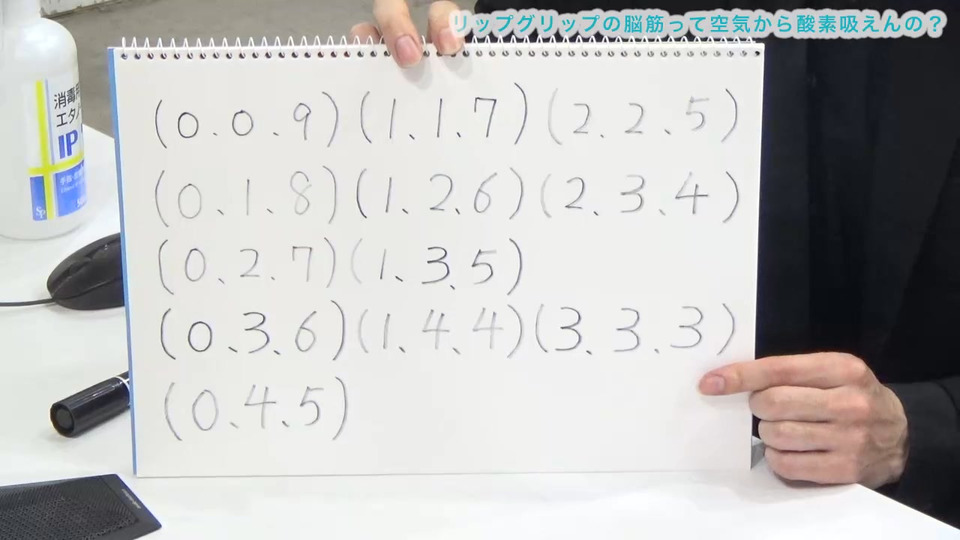 リップグリップの脳筋って空気から酸素吸えんの？
(0、0、9)(1、1、7)(2、2、5)
(0、1、8)(1、2、6)(2、3、4)
(0、2、7)(1、3、5)
(0、3、6)(1、4、4)(3、3、3)
(0、4、5)
消毒
エタノ
IP